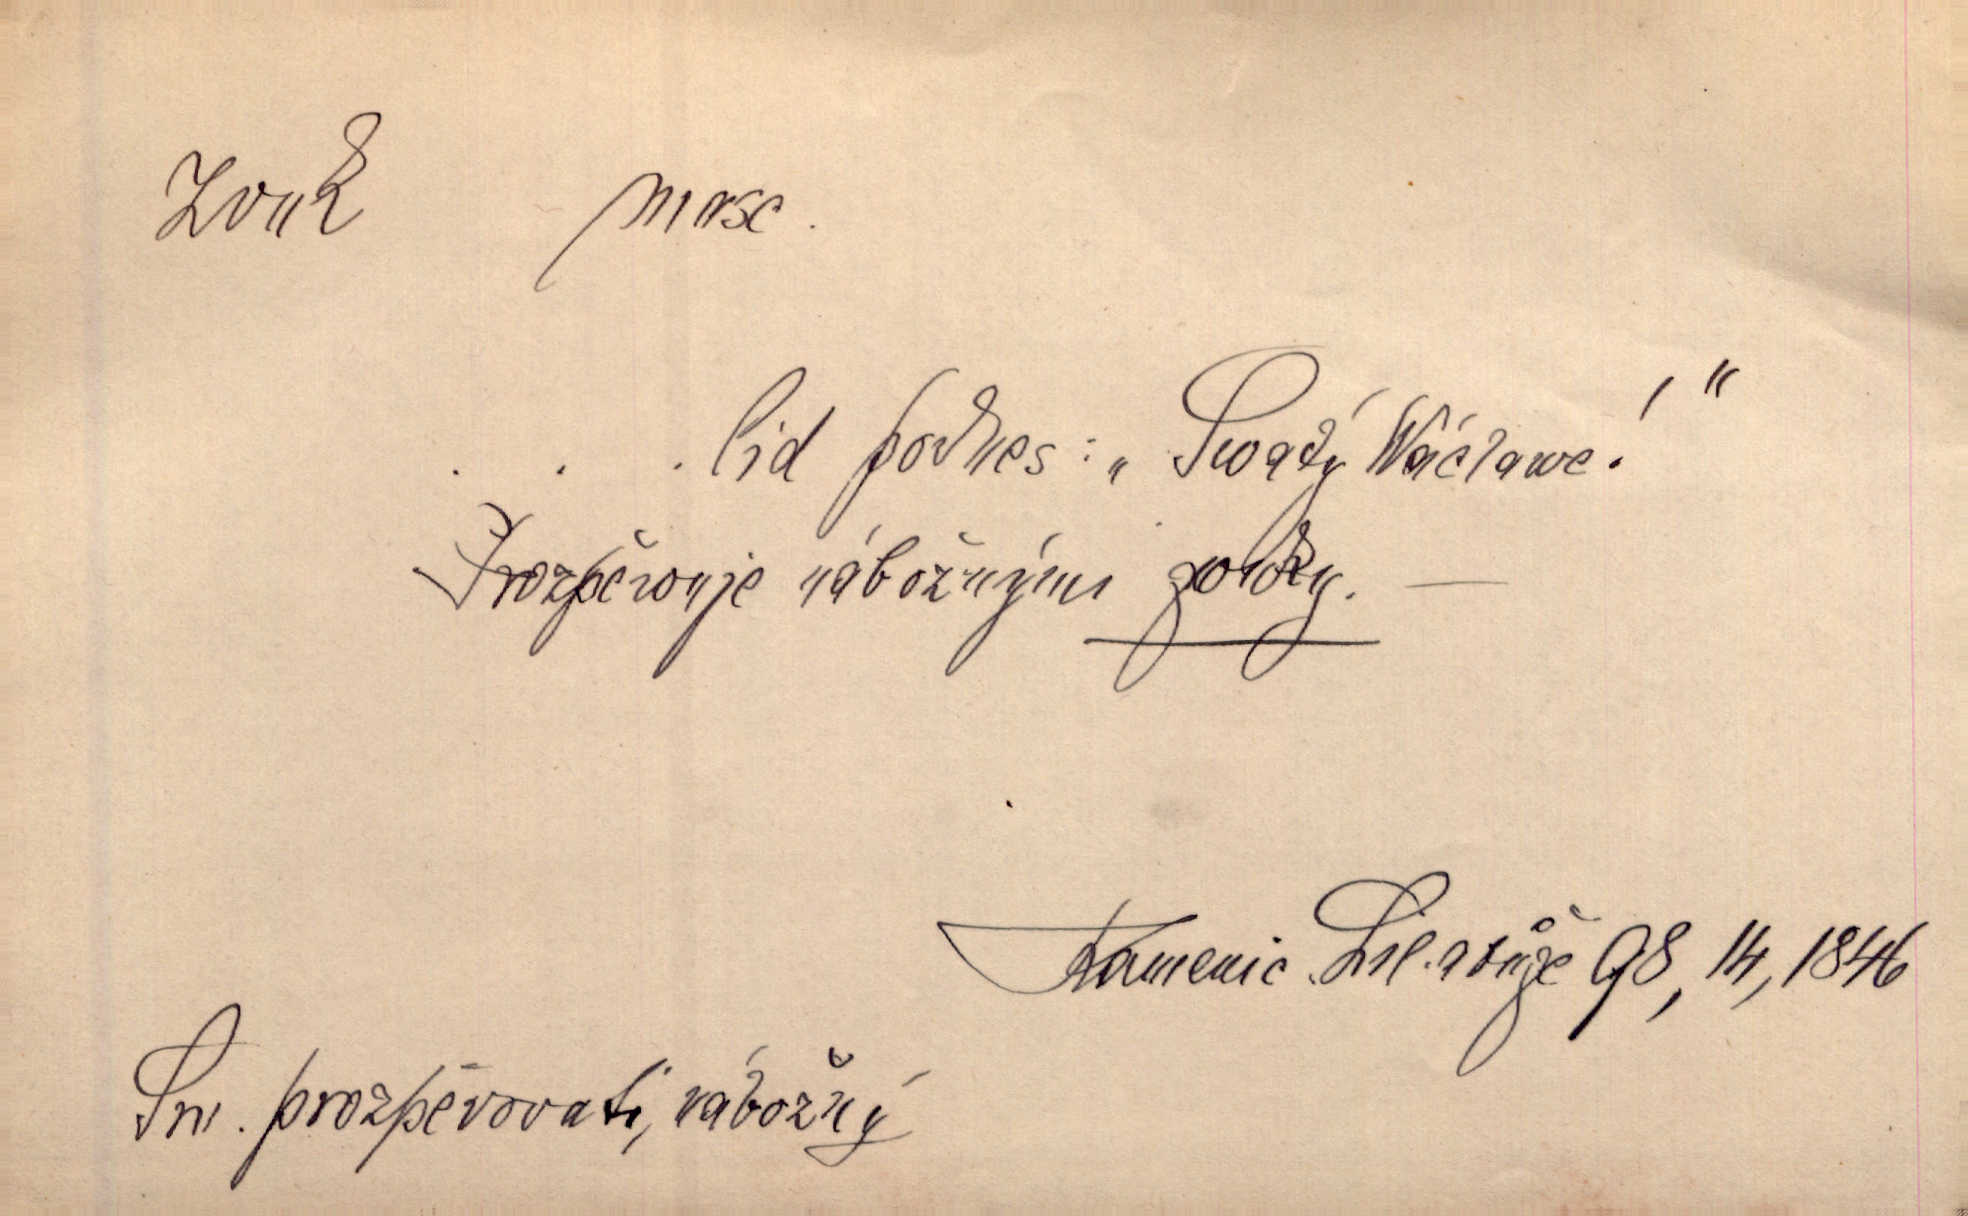 Zvuk masc.
. . . lid podnes: „Swatý Wáclawe!"
Prozpěvuje nábožnými zvuky. —
Kamenic. Lil. a růže 98, 14, 1846
Srv. prozpěvovati, nábožný